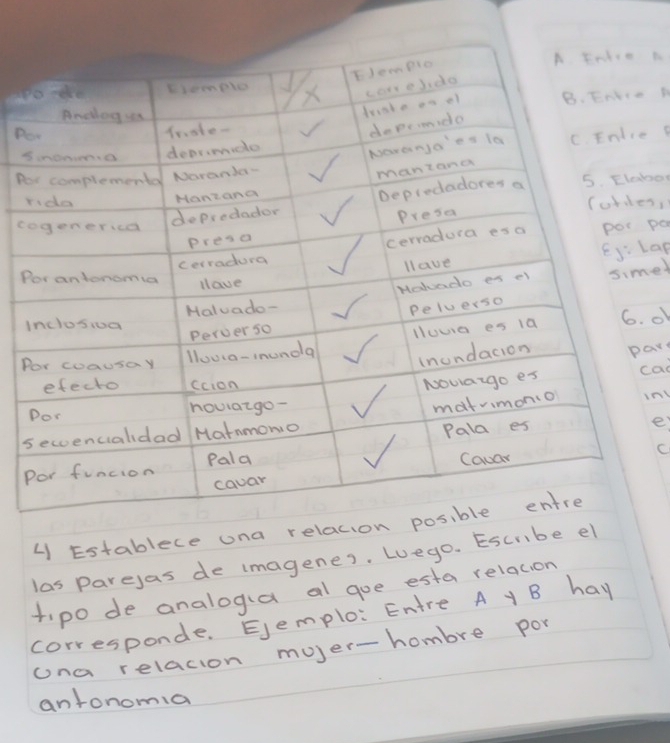 Ejemplo
Ejemplo
correjido
Analogia
Por
sinonimia
Triste-
deprimido
triste es el
deprimido
Por complementa
rida
Naranja-
Manzana
Naranja es la
manzana
cogenerica
depredador
presa
Depredadores a
Presa
Por antonomia
cerradura
llave
cerradura es a
llave
Inclusiva
Malvado-
perverso
Malvado es el
Pelverso
Por coausay
efecto
lluvia-inunda
ccion
lluvia es la
inundacion
Por
secuencialidad
noviazgo-
Matrimonio
Noviazgo es
matrimonio
Por funcion
Pala
cavar
Pala es
Cavar
4 Establece una relacion posible entre
las parejas de imagenes. Luego. Escribe el
tipo de analogia al que esta relacion
corresponde. Ejemplo: Entre A y B hay
una relacion mujer-hombre por
antonomia
A. Entre
B. Entre
C. Entre
5.
por
Ej: Lap
6.